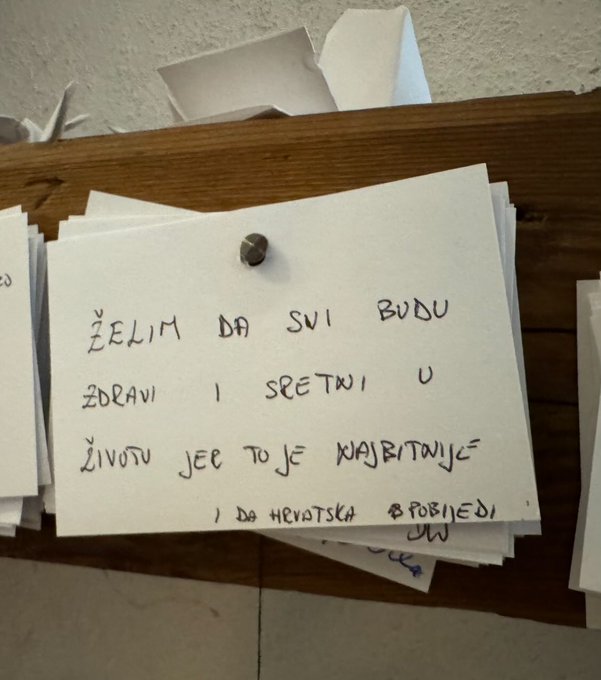 ŽELIM DA SVI BUDU
ZDRAVI I SRETNI U
ŽIVOTU JER TO JE NAJBITNIJE
I DA HRVATSKA POBIJEDI